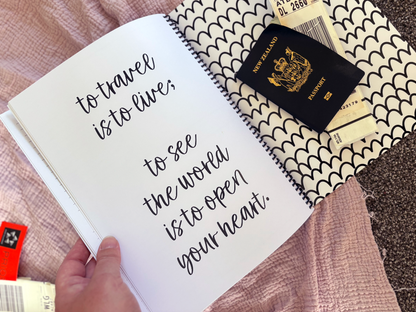 to travel
is to live;
to see
the world
is to open
your heart.
NEW ZEALAND
PASSPORT
DL 2660
WLG